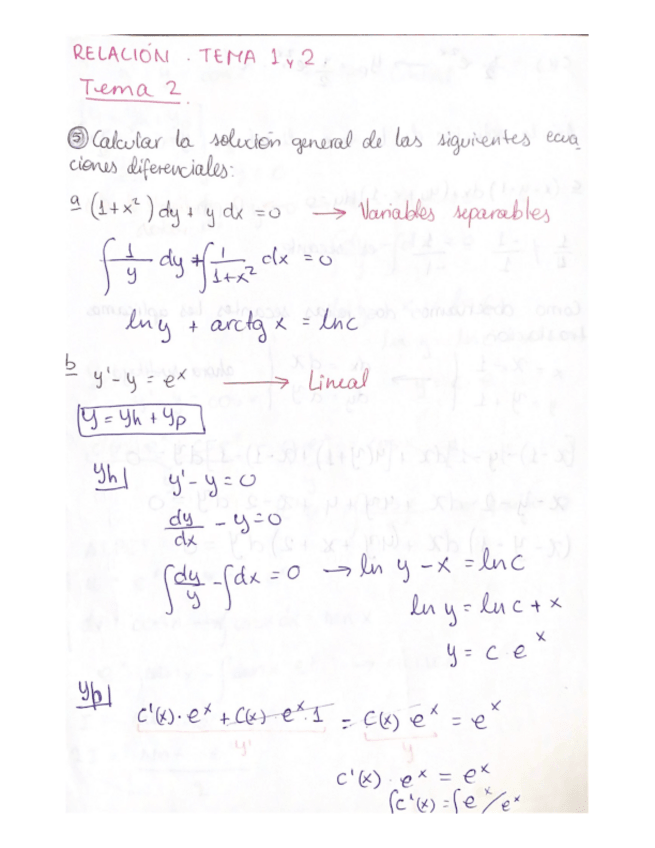 RELACIÓN . TEMA 1 y 2
Tema 2
⑤ Calcular la solución general de las siguientes ecua
ciones diferenciales:
a (1+x²) dy + y dx = 0 → Variables separables
∫ 1/y dy + ∫ 1/(1+x²) dx = 0
ln y + arctg x = ln c
b y' - y = eˣ → Lineal
y = yh + yp
yh| y' - y = 0
dy/dx - y = 0
∫ dy/y - ∫ dx = 0 → ln y - x = ln C
ln y = ln c + x
y = c · eˣ
yp|
C'(x) · eˣ + C(x) · eˣ · 1 - C(x) eˣ = eˣ
y' y
C'(x) · eˣ = eˣ
∫ C'(x) = ∫ eˣ/eˣ